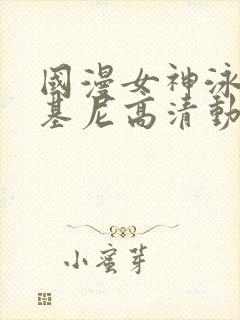 國漫女神泳
基尼高清動
小蜜芽